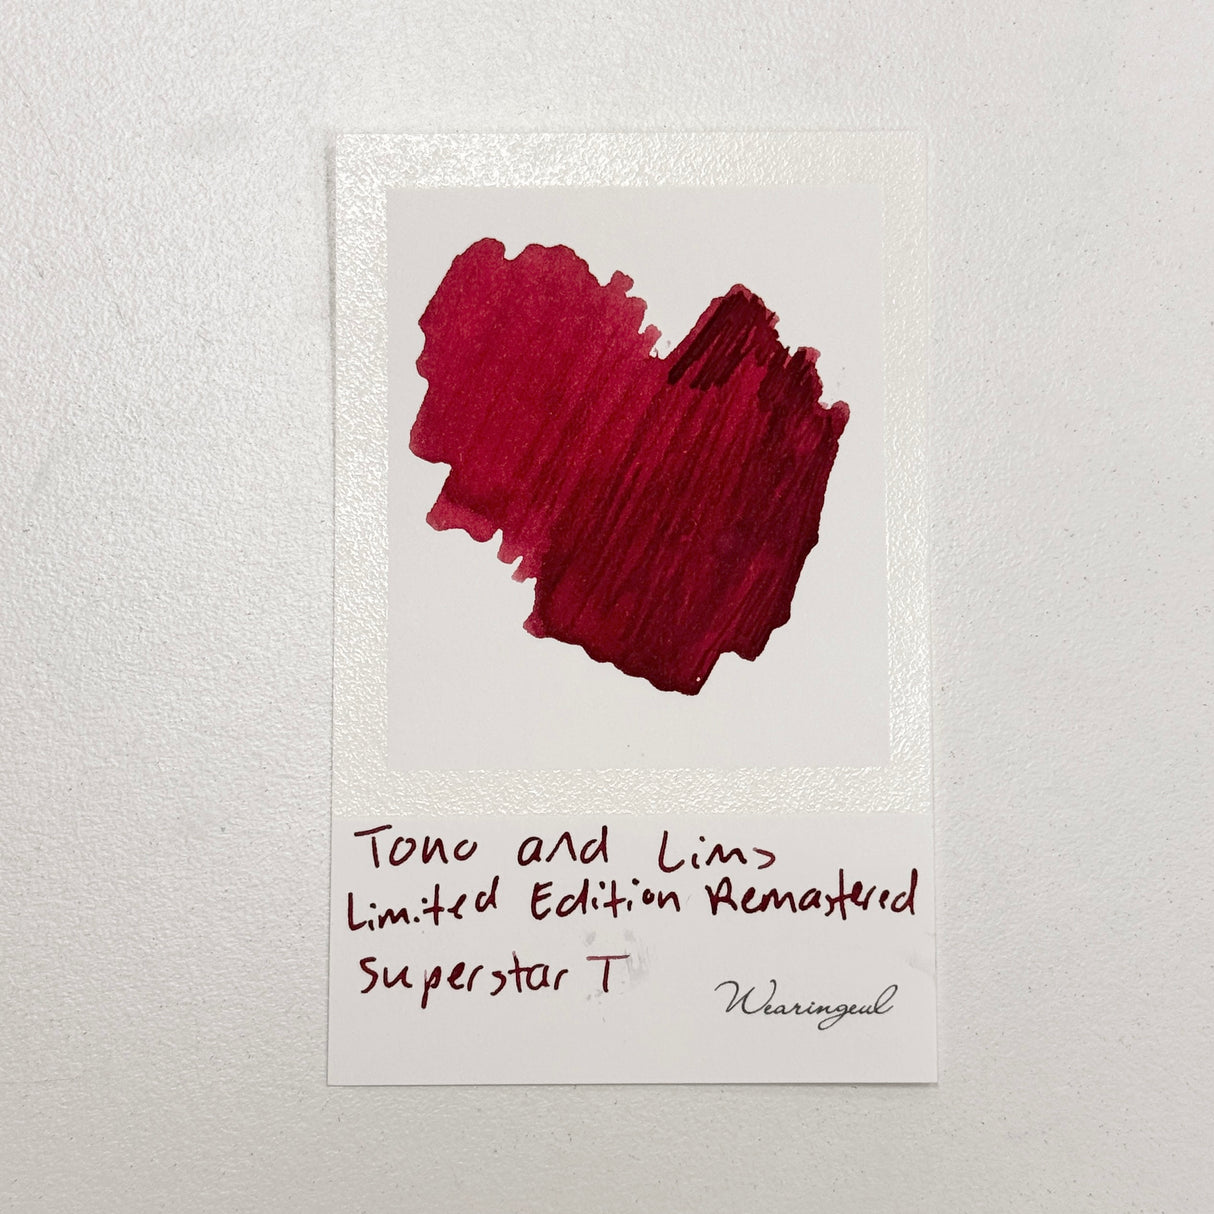 Tono and Lims
Limited Edition Remastered
Superstar T
Wearingeul